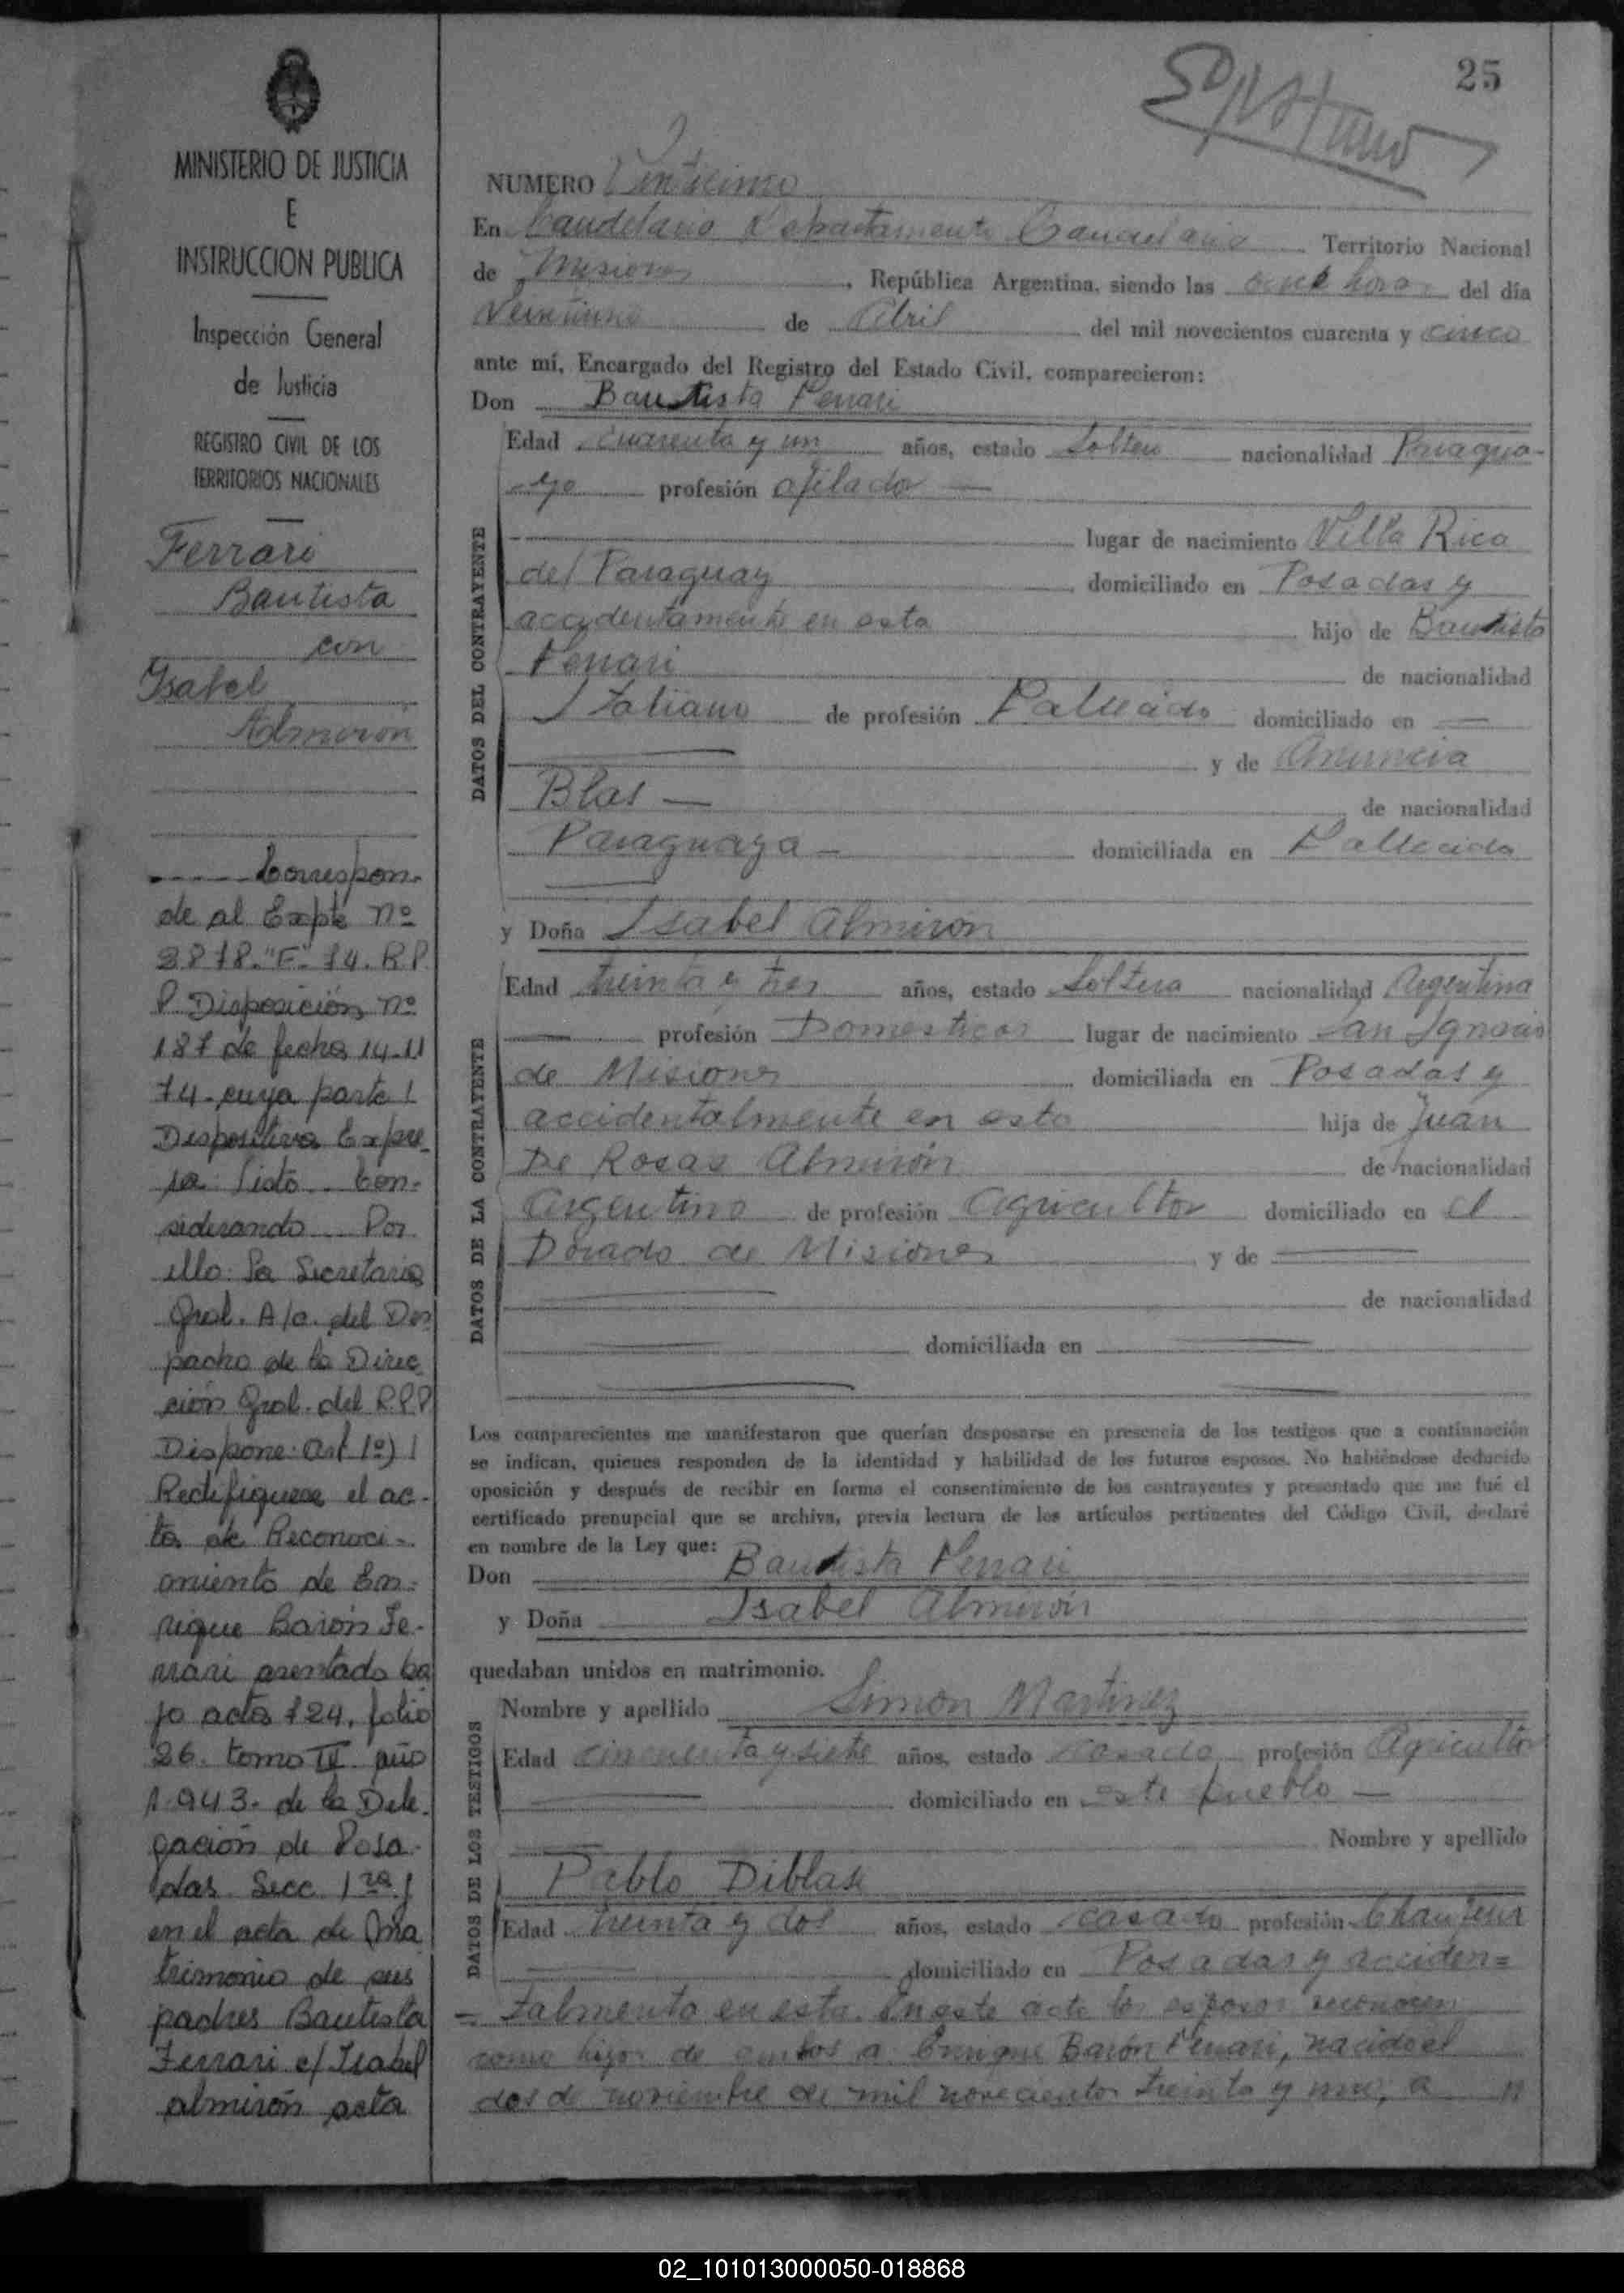 25
MINISTERIO DE JUSTICIA
E
INSTRUCCION PUBLICA
Inspección General
de Justicia
REGISTRO CIVIL DE LOS
TERRITORIOS NACIONALES
Ferrari
Bautista
con
Ysabel
Almirón
Correspon-
de al Expte nº
"F" 74. R.P.
P. Disposición nº
187 de fecha 14-11
74. cuya parte
Dispositiva Expre-
sa: Visto... Con-
siderando... Por
ello: La Secretaria
Gral. A/c. del Des
pacho de la Direc
ción Gral. del R.P.P
Dispone: Art 1º)
Rectifíquese el ac-
ta de Reconoci-
miento de En-
rique Barón Fe-
rrari asentado ba
jo acta 124, folio
26. tomo II año
1.943. de la Dele-
gación de Posa-
das. Secc 1ra y
en el acta de Ma
trimonio de sus
padres Bautista
Ferrari c/ Isabel
almirón acta
NUMERO
En Candelaria Departamento Candelaria Territorio Nacional
de Misiones, República Argentina, siendo las once horas del día
Veintiuno de Abril del mil novecientos cuarenta y cinco
ante mí, Encargado del Registro del Estado Civil, comparecieron:
Don Bautista Ferrari
DATOS DEL CONTRAYENTE
Edad cuarenta y un años, estado Soltero nacionalidad Paragua-
-yo profesión afilador
lugar de nacimiento Villa Rica
del Paraguay domiciliado en Posadas y
accidentamente en esta hijo de Bautista
Ferrari de nacionalidad
Italiano de profesión Fallecido domiciliado en
y de Anuncia
Blas de nacionalidad
Paraguaya domiciliada en Fallecida
y Doña Isabel Almiron
DATOS DE LA CONTRAYENTE
Edad treinta y tres años, estado Soltera nacionalidad Argentina
profesión Domesticas lugar de nacimiento San Ignacio
de Misiones domiciliada en Posadas y
accidentalmente en esta hija de Juan
De Rosas Almirón de nacionalidad
Argentino de profesión Agricultor domiciliado en el
Dorado de Misiones y de
de nacionalidad
domiciliada en
Los comparecientes me manifestaron que querían desposarse en presencia de los testigos que a continuación
se indican, quienes responden de la identidad y habilidad de los futuros esposos. No habiéndose deducido
oposición y después de recibir en forma el consentimiento de los contrayentes y presentado que me fué el
certificado prenupcial que se archiva, previa lectura de los artículos pertinentes del Código Civil, declaré
en nombre de la Ley que:
Don Bautista Ferrari
y Doña Isabel Almirón
quedaban unidos en matrimonio.
DATOS DE LOS TESTIGOS
Nombre y apellido Simon Martinez
Edad cincuenta y siete años, estado casado profesión Agricultor
domiciliado en este pueblo
Nombre y apellido
Pablo Diblasi
Edad treinta y dos años, estado casado profesión Chauffeur
domiciliado en Posadas y acciden=
= talmente en esta. En este acto los esposos reconocen
como hijos de ambos a Enrique Barón Ferrari, nacido el
dos de noviembre de mil novecientos treinta y uno, a
02_101013000050-018868